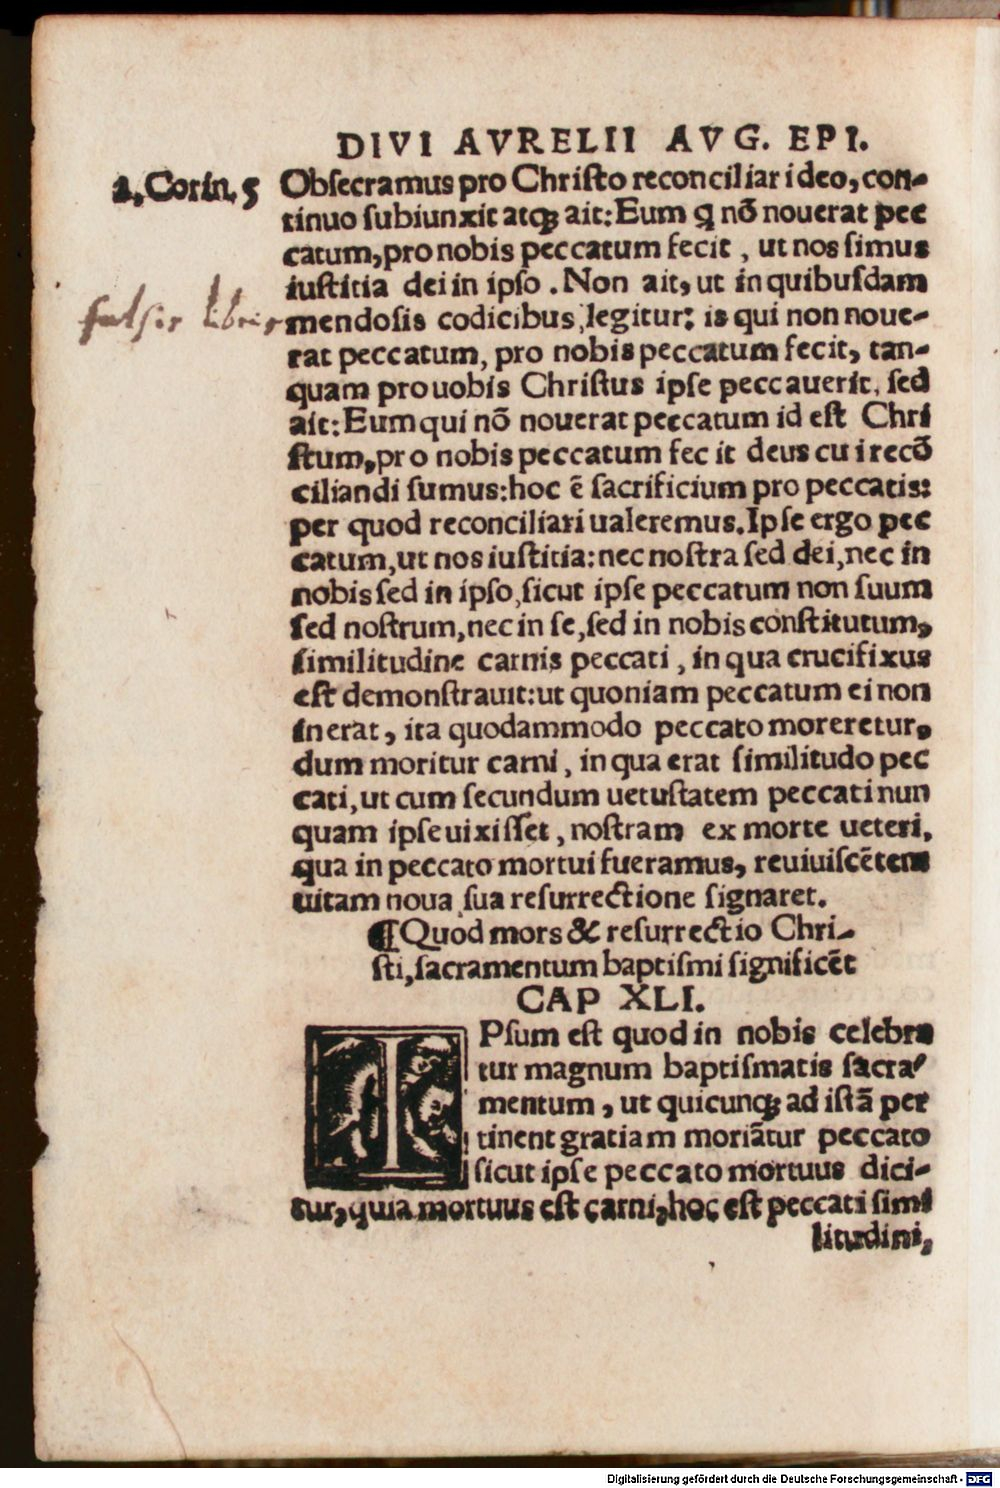 DIVI AVRELII AVG. EPI.
2, Corin, 5
Obſecramus pro Chriſto reconciliari deo, con-
tinuo ſubiunxit atqꝫ ait: Eum q̃ nõ nouerat pec
catum, pro nobis peccatum fecit, ut nos ſimus
iuſtitia dei in ipſo. Non ait, ut in quibuſdam
falsis libris
mendoſis codicibus legitur: is qui non noue-
rat peccatum, pro nobis peccatum fecit, tan-
quam pro uobis Chriſtus ipſe peccauerit, ſed
ait: Eum qui nõ nouerat peccatum id eſt Chri
ſtum, pro nobis peccatum fecit deus cui recõ
ciliandi ſumus: hoc ẽ ſacrificium pro peccatis:
per quod reconciliari ualeremus. Ipſe ergo pec
catum, ut nos iuſtitia: nec noſtra ſed dei, nec in
nobis ſed in ipſo, ſicut ipſe peccatum non ſuum
ſed noſtrum, nec in ſe, ſed in nobis conſtitutum,
ſimilitudine carnis peccati, in qua crucifixus
eſt demonſtrauit: ut quoniam peccatum ei non
inerat, ita quodammodo peccato moreretur,
dum moritur carni, in qua erat ſimilitudo pec
cati, ut cum ſecundum uetuſtatem peccati nun
quam ipſe uixiſſet, noſtram ex morte ueteri,
qua in peccato mortui fueramus, reuiuiſcẽtem
uitam noua ſua reſurrectione ſignaret.
¶ Quod mors & reſurrectio Chri-
ſti, ſacramentum baptiſmi ſignificẽt
CAP XLI.
IPſum eſt quod in nobis celebra
tur magnum baptiſmatis ſacra-
mentum, ut quicunqꝫ ad iſtã per
tinent gratiam moriãtur peccato
ſicut ipſe peccato mortuus dici-
tur, quia mortuus eſt carni, hoc eſt peccati ſimi
litudini,
Digitalisierung gefördert durch die Deutsche Forschungsgemeinschaft - DFG